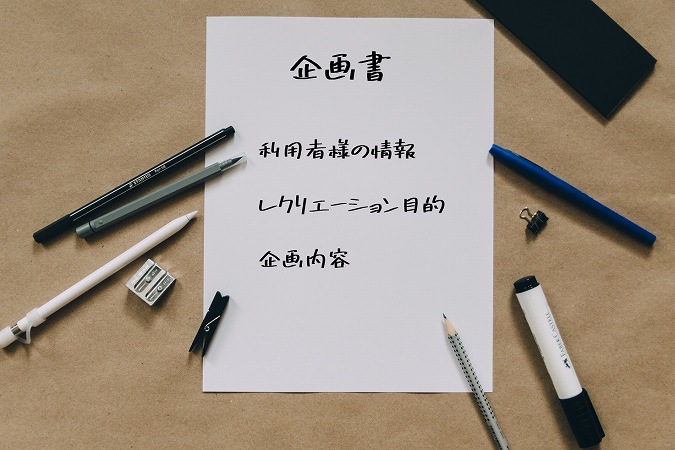 企画書
利用者様の情報
レクリエーション目的
企画内容
FABER-CASTELL